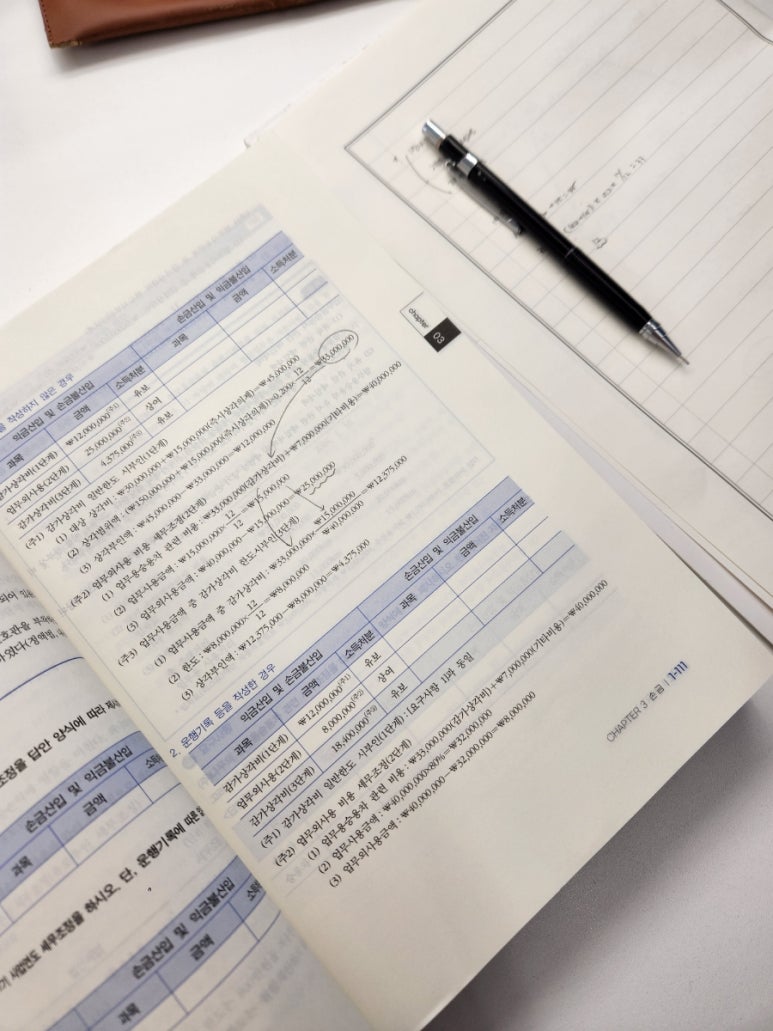 chapter
03
작성하지 않은 경우
익금산입 및 손금불산입
손금산입 및 익금불산입
과목
금액
소득처분
과목
금액
소득처분
감가상각비(1단계)
₩12,000,000(주1)
유보
업무외사용(2단계)
25,000,000(주2)
상여
감가상각비(3단계)
4,375,000(주3)
유보
(주1) 감가상각비 일반한도 시부인(1단계)
(1) 대상 상각비 : ₩30,000,000+₩15,000,000(즉시상각의제)=₩45,000,000
(2) 상각범위액 : (₩150,000,000+₩15,000,000(즉시상각의제))×0.200×12/12=₩33,000,000
(3) 상각부인액 : ₩45,000,000-₩33,000,000=₩12,000,000
(주2) 업무외사용 비용 세무조정(2단계)
(1) 업무용승용차 관련 비용 : ₩33,000,000(감가상각비)+₩7,000,000(기타비용)=₩40,000,000
(2) 업무사용금액 : ₩15,000,000×12/12=₩15,000,000
(3) 업무외사용금액 : ₩40,000,000-₩15,000,000=₩25,000,000
(주3) 업무사용금액 중 감가상각비 한도시부인(3단계)
(1) 업무사용금액 중 감가상각비 : ₩33,000,000×₩15,000,000/₩40,000,000=₩12,375,000
(2) 한도 : ₩8,000,000×12/12=₩8,000,000
(3) 상각부인액 : ₩12,375,000-₩8,000,000=₩4,375,000
2. 운행기록 등을 작성한 경우
익금산입 및 손금불산입
손금산입 및 익금불산입
과목
금액
소득처분
과목
금액
소득처분
감가상각비(1단계)
₩12,000,000(주1)
유보
업무외사용(2단계)
8,000,000(주2)
상여
감가상각비(3단계)
18,400,000(주3)
유보
(주1) 감가상각비 일반한도 시부인(1단계) : [요구사항 1]과 동일
(주2) 업무외사용 비용 세무조정(2단계)
(1) 업무용승용차 관련 비용 : ₩33,000,000(감가상각비)+₩7,000,000(기타비용)=₩40,000,000
(2) 업무사용금액 : ₩40,000,000×80%=₩32,000,000
(3) 업무외사용금액 : ₩40,000,000-₩32,000,000=₩8,000,000
CHAPTER 3 손금 | 1-111
조정을 답안 양식에 따라
손금산입 및 익금불산입
과목
금액
사업연도 세무조정을 하시오. 단, 운행기록에 따른
손금산입 및 익금불산입
과목
금액